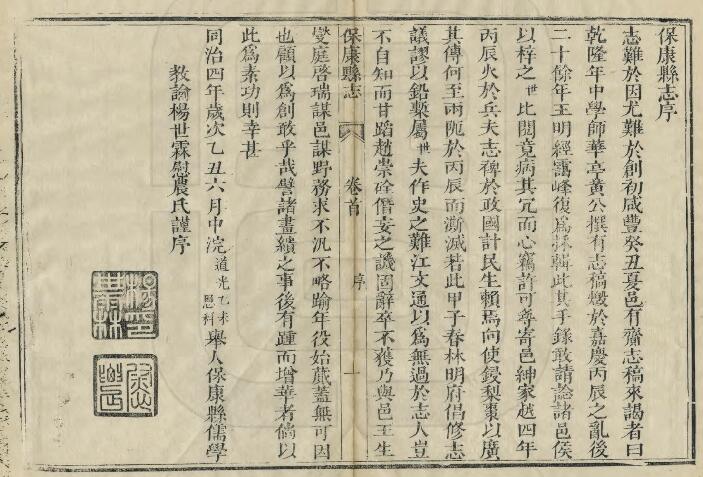 保康縣志序
志難於因尤難於創初咸豐癸丑夏邑有齎志稿來謁者曰
乾隆年中學師華亭黃公撰有志稿燬於嘉慶丙辰之亂後
二十餘年王明經靄峰復爲採輯此其手錄敢請諗諸邑侯
以梓之世比閱竟病其冗而心竊許可尋寄邑紳家越四年
丙辰火於兵夫志裨於政國計民生賴焉向使鋟梨棗以廣
其傳何至兩阨於丙辰而澌滅若此甲子春林明府倡修志
議謬以鉛槧屬世夫作史之難江文通以爲無過於志人豈
不自知而甘蹈趙崇硂僭妄之譏固辭卒不獲乃與邑王生
保康縣志
卷首
序
一
燮庭啓瑞謀邑謀野務求不汎不略踰年役始蕆蓋無可因
也顧以爲創敢乎哉譬諸畫繢之事後有踵而增華者倘以
此爲素功則幸甚
同治四年歲次乙丑六月中浣道光乙未恩科舉人保康縣儒學
教諭楊世霖慰農氏謹序